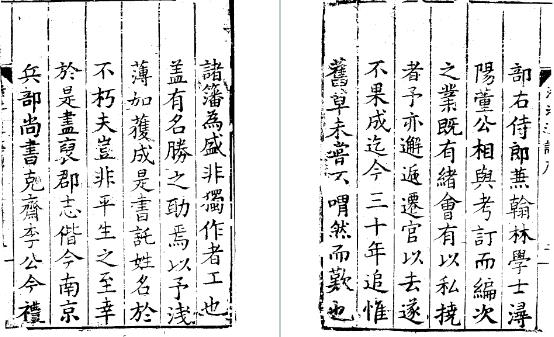 諸籓為盛非獨作者工也
盖有名勝之助焉以予淺
薄如獲成是書託姓名於
不朽夫豈非平生之至幸
於是盡裒郡志偕今南京
兵部尚書克齋李公今禮
部右侍郎兼翰林學士潯
陽董公相與考訂而編次
之業既有緒會有以私撓
者予亦邂逅遷官以去遂
不果成迄今三十年追惟
舊草未嘗不喟然而歎也